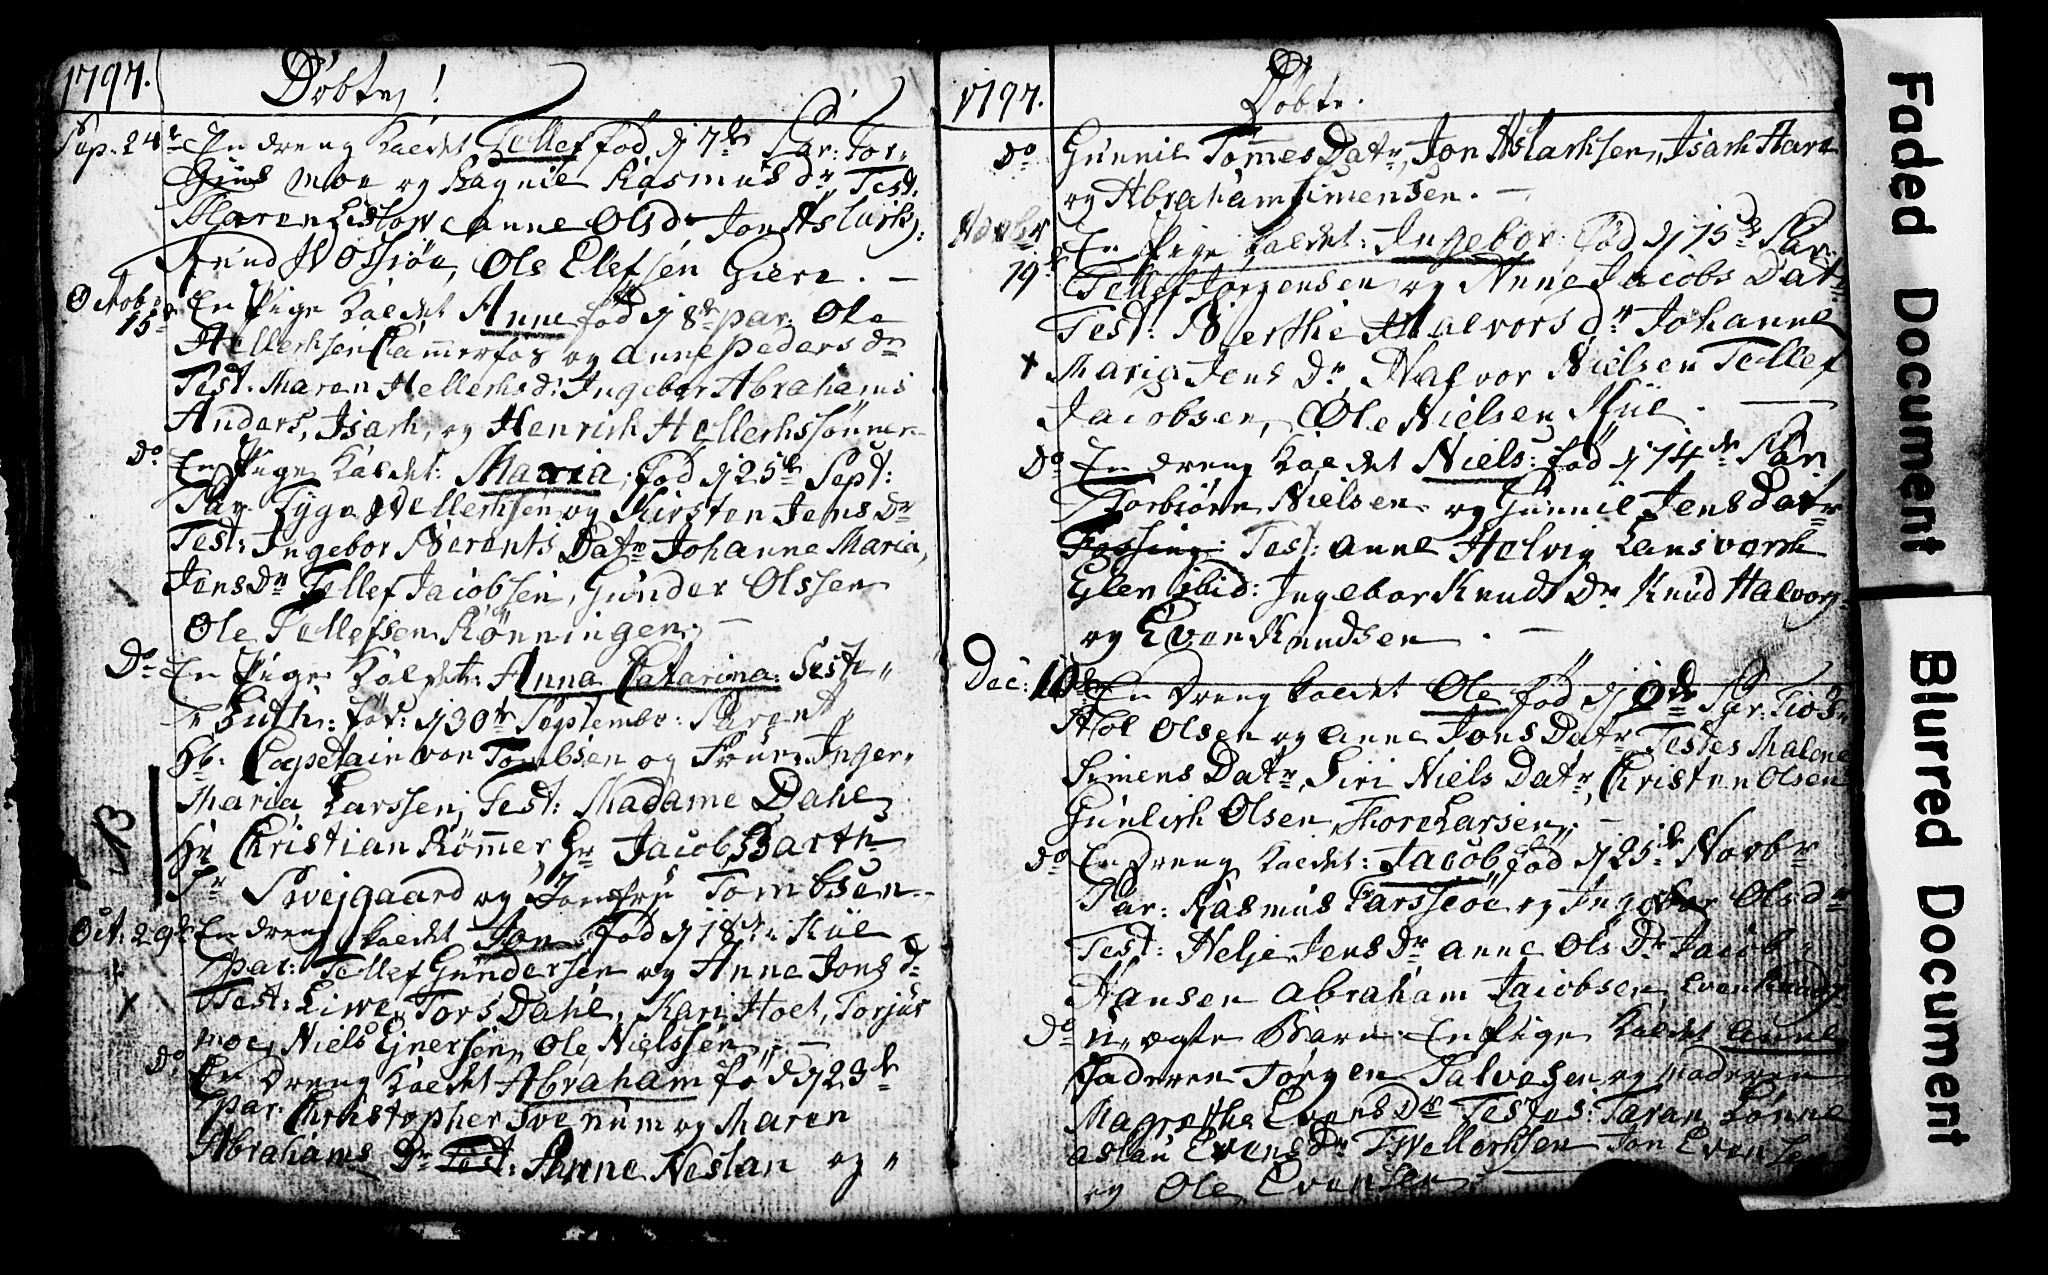 1797. Döbte!
Sep. 24de En dreng kaldet Tellef fød d 7de Par: Tor-
Gius Moe og Ragnil Rasmus dr Test.
Maren Listow Anne Ols dr Jon Aslachs:
Knud Wossiöe, Ole Elefsen Giere. —
Octob: 15de En Pige kaldet Anne fød d 8de par: Ole
Hellerhsen Cammerfos og anne peders dr
Test. Maren Hellerhsd: Ingebor Abrahams
Anders, Isach, og Henrich Hellerhssönner
Do En Pige kaldet: Maria, fød d 25de Sept:
Par Tyge Wellerhsen og Kirsten Jens Dr
Test: Ingebor Berents Datr Johanne Maria,
Jens Dr Tellef Jacobsen, Gunder Olssen
Ole Tellefsen Rönningen. —
Do En Pige kaldet: Anna Catarina: Seste
Guth: fød: d 30te Septembr: Parent
Hr. Capetain von Tombsen og Frue Inger
Maria Larssen, Test: Madame Dahl
Hr Christian Römmer, Hr Jacob Barth
Sr Swejgaard og Jomfru Tombsen
Oct. 29de En dreng kaldet Jon fød d 18de Kiil
par: Tellef Gundersen og Anne Jons d
Test: Liwe Tors Dahl, Kari Hoel, Torjus
moe, Niels Ejnersen, Ole Nielssen —
Do En Dreng kaldet Abraham fød d 23de
par. Christopher Tvenum og Maren
Abrahams Dr Test: Anne Neslan og
1797. Döbte.
Do Gunnil Tommes Datr, Jon Aslachsen, Isach Hare
og Abraham Simensen. —
Novbr 19de En Pige kaldet: Ingebor: fød d 15de Par:
Tellef Jörgensen og Anne Jacobs Datr
Test: Berthe Halvors dr Johanne
Maria Jens Dr, Halvor Nielsen Tellef
Jacobsen, Ole Nielsen Kiil. —
Do En dreng kaldet Niels: fød d 14de Par
Torbiörn Nielsen og Gunnil Jens Datr
Fossing: Test: anne Helvig Lansverk
Elen ibid: Ingebor Knuds Dr Knud Halvors
og Even Knudsen. —
Dec: 10de En Dreng kaldet Ole fød d 9de Par: Tios-
Hol Olsen og anne Jons Datr Testes Malene
Simens Datr, Siri Niels Datr, Christen Olsen
Gunlich Olsen, Thore Larsen. —
Do En Dreng kaldet: Jacob, fød d 25de Novbr
Par: Rasmus Farssiöe og Ingebor Olsdr
Test: Helje Jens Dr anne Ols Dr Jacob
Hansen Abraham Jacobsen, Even Knuds:
Do u-ægte Barn En Pige kaldet Anne
Faderen Jörgen Salvesen og moderen
Magrethe Evens Dr Testes: Taran Lönne
aslau Evens Dr T: Wellerhsen Jon Evensen
og Ole Evensen.
Faded Document
Blurred Document